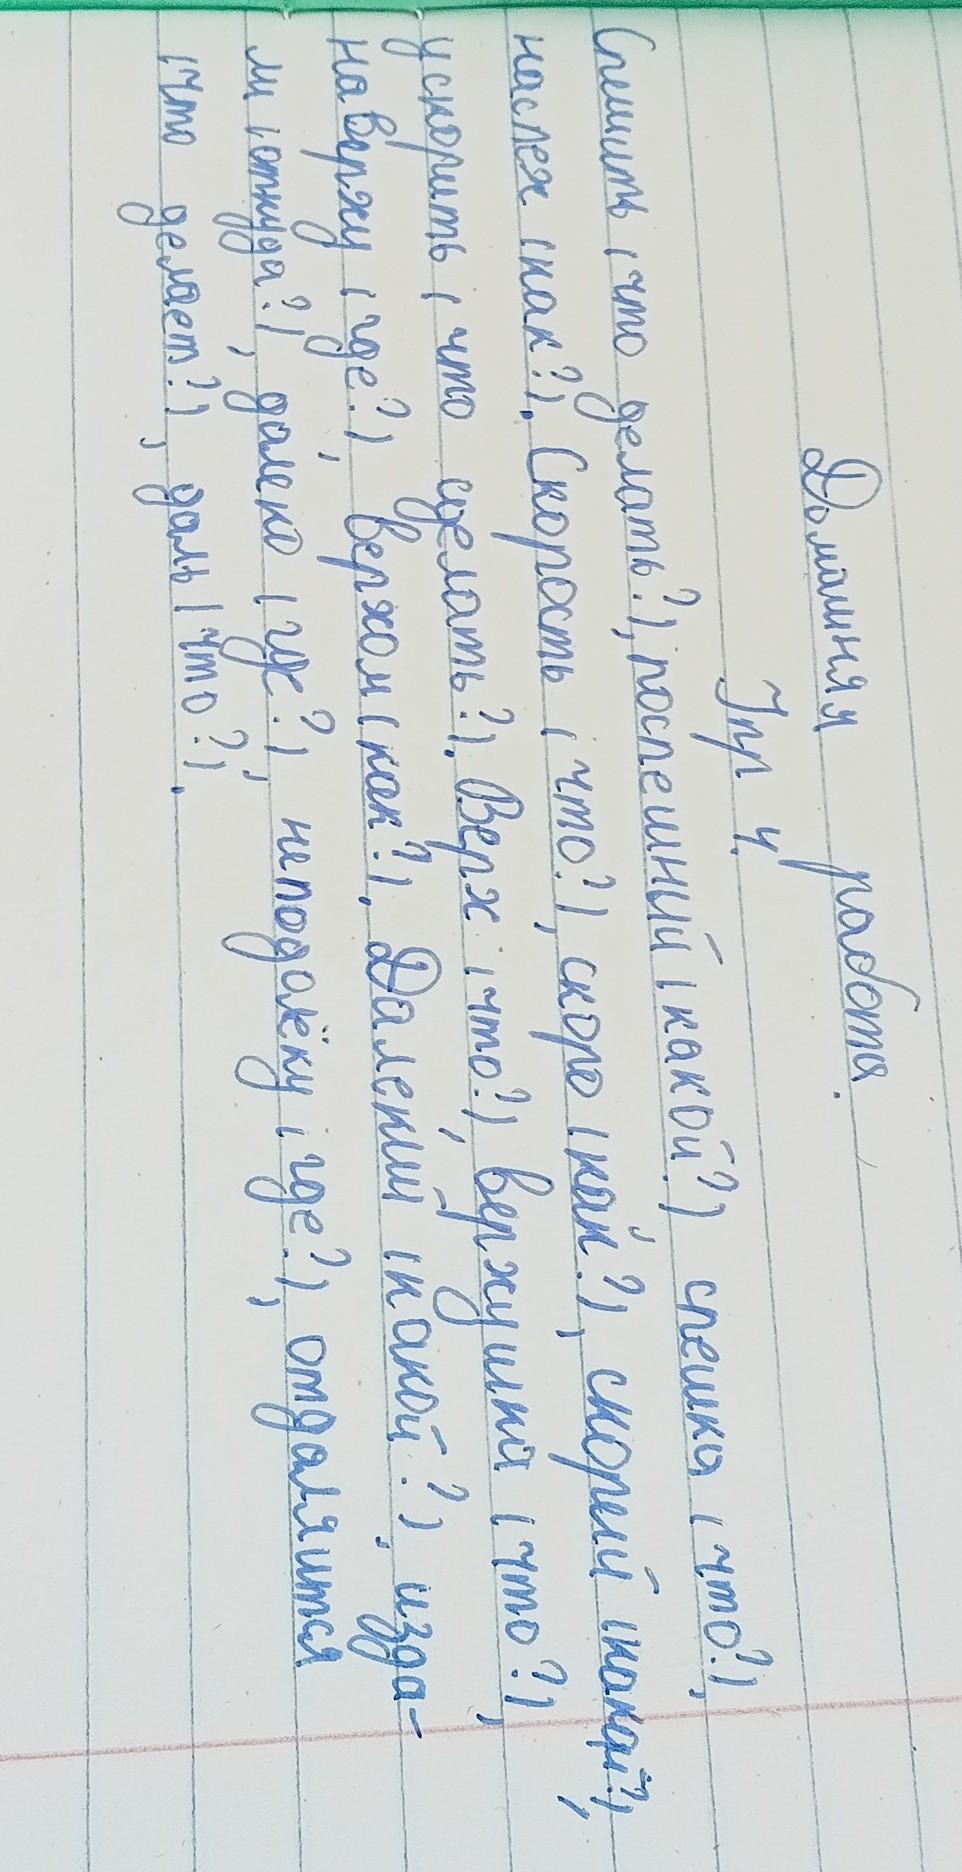 Домашняя работа.
Упр 4.
Спешить (что делать?), поспешний (какой?) спешка (что?),
наспех (как?). Скорость (что?), скоро (как?), скорый (какой?),
ускорить (что сделать?). Верх (что?), верхушка (что?),
наверху (где?), верхом (как?). Далекий (какой?), изда-
ли (откуда?), далеко (где?), неподалёку (где?), отдалятся
(что делает?), даль (что?).